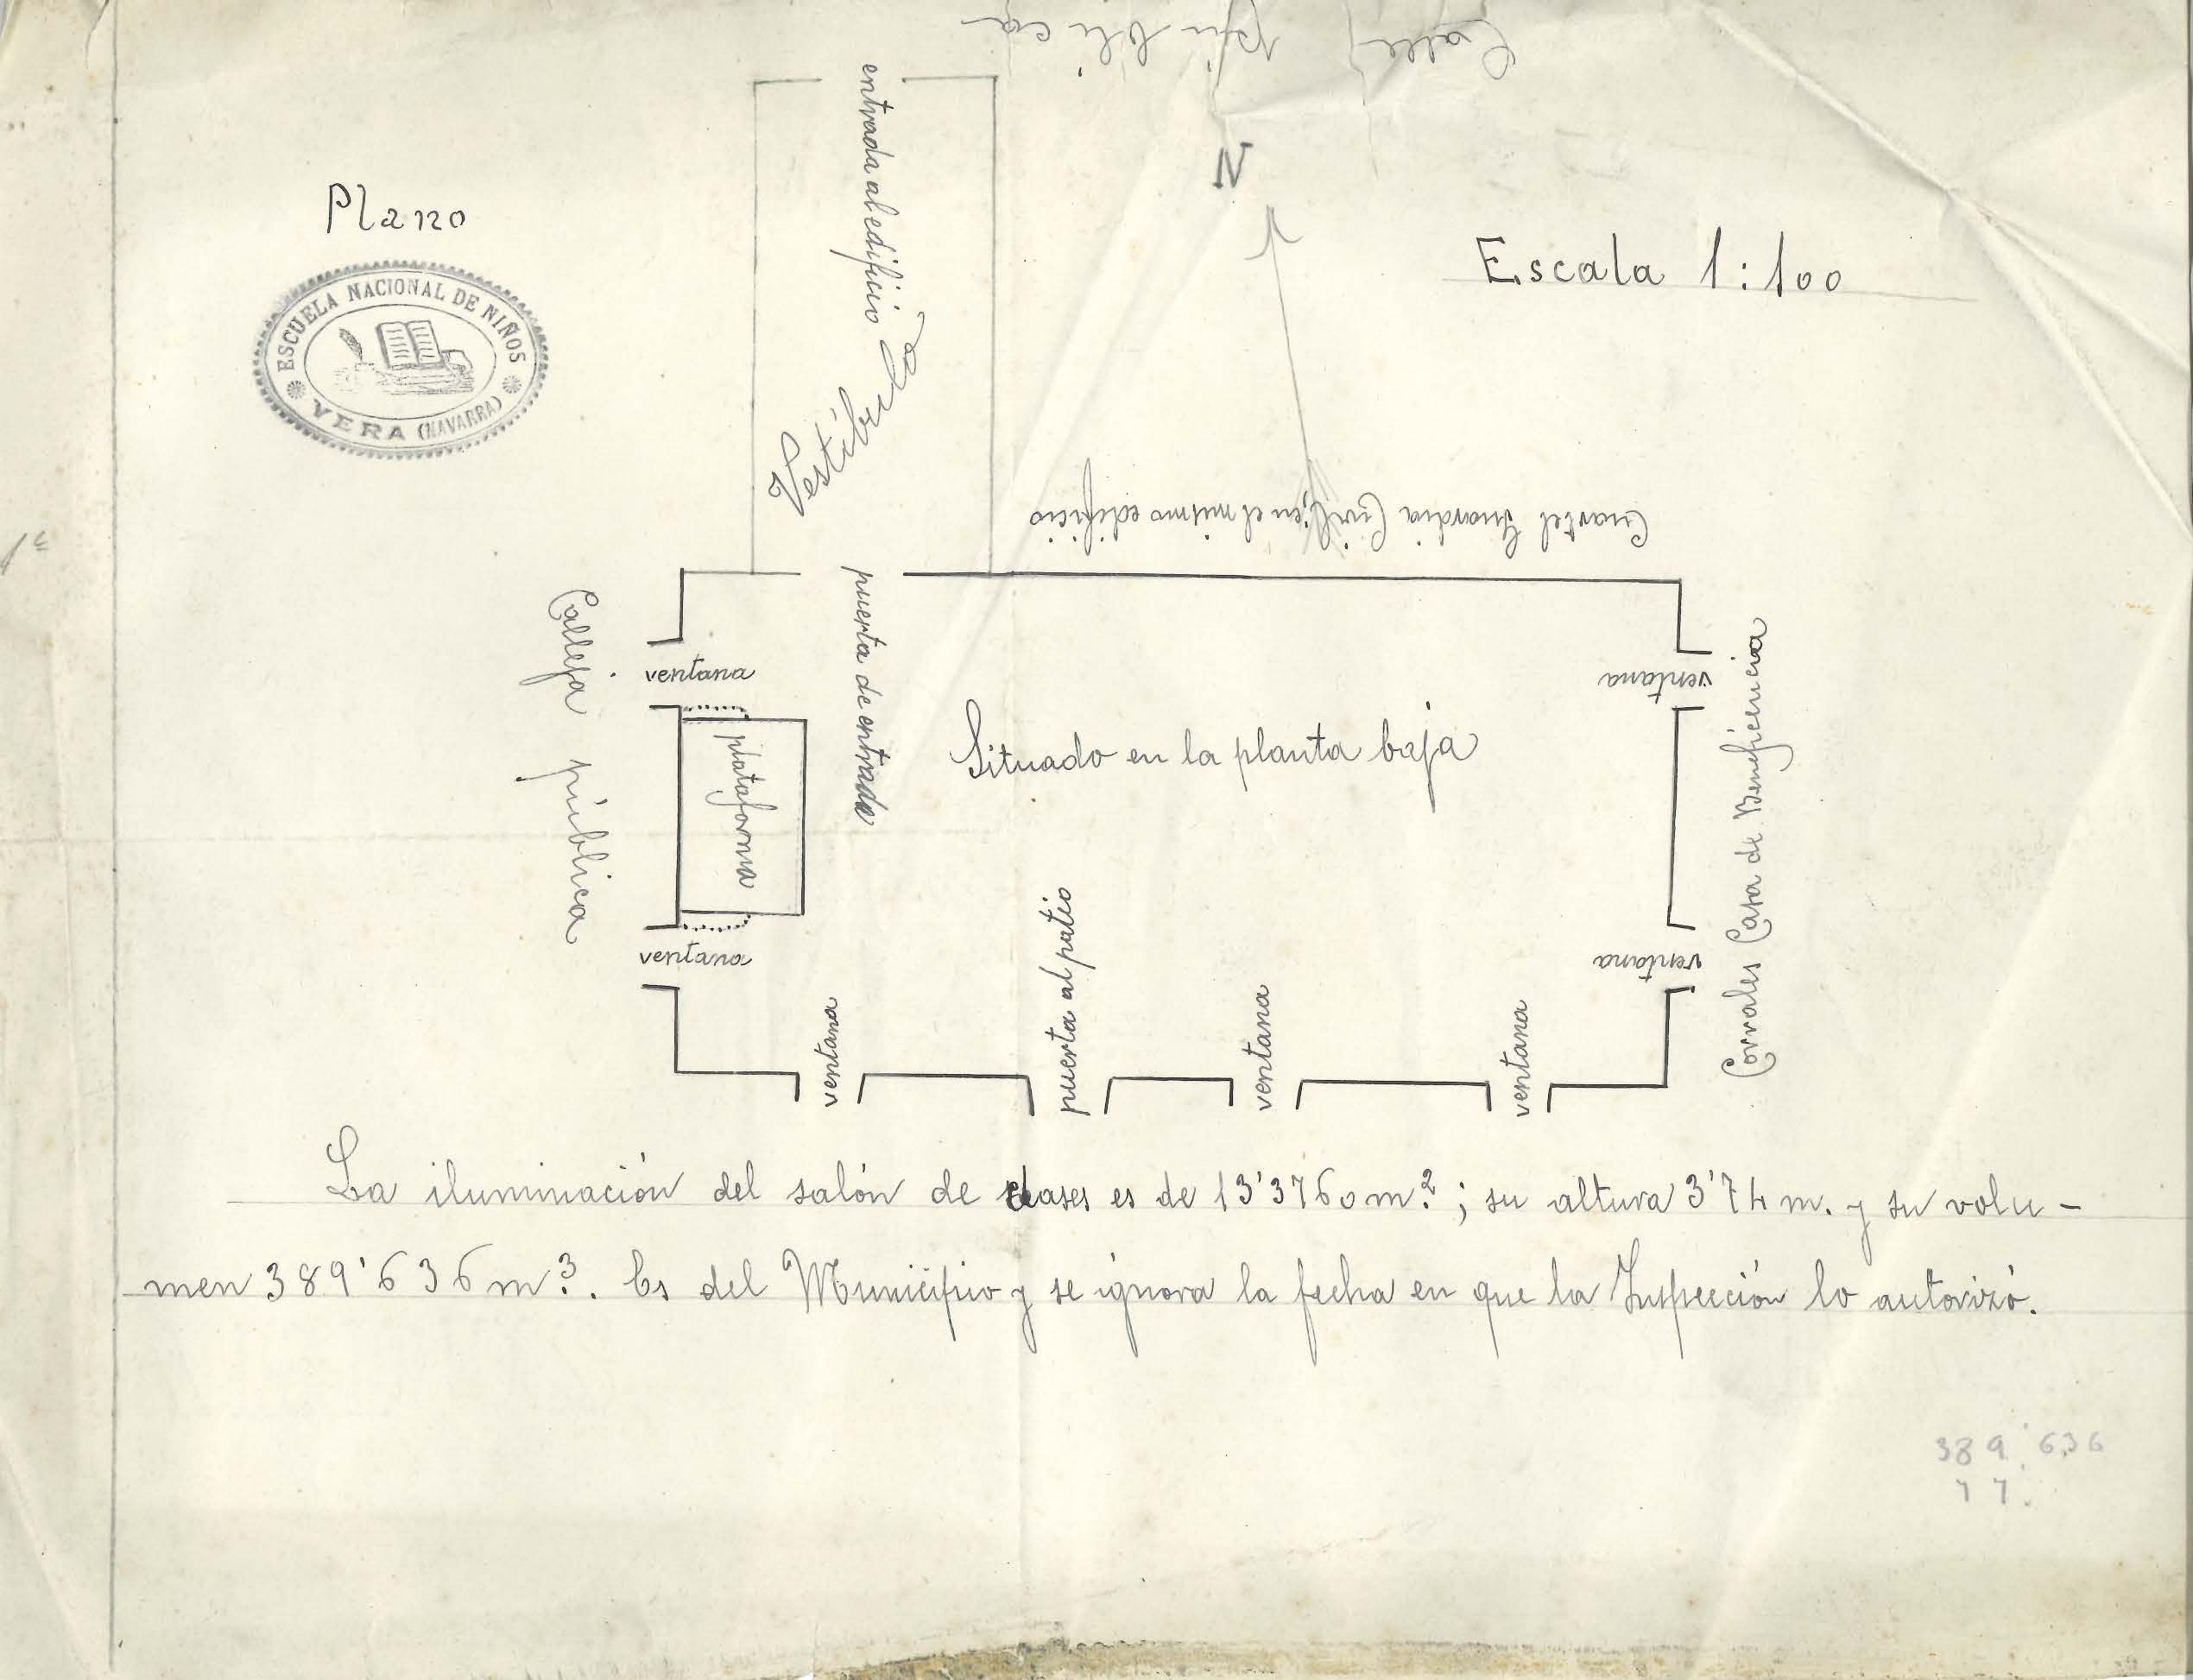 Calle pública
entrada al edificio
N
Plano
Escala 1:100
ESCUELA NACIONAL DE NIÑOS
VERA (NAVARRA)
Vestíbulo
Cuartel Guardia Civil, en el mismo edificio
1ª
Calleja pública
puerta de entrada
ventana
ventana
Corrales Casa de Beneficencia
plataforma
Situado en la planta baja
ventana
ventana
ventana
puerta al patio
ventana
ventana
La iluminación del salón de clases es de 13'3760 m.²; su altura 3'74 m. y su volu-
men 389'636 m³. Es del Municipio y se ignora la fecha en que la Inspección lo autorizó.
389'636
77